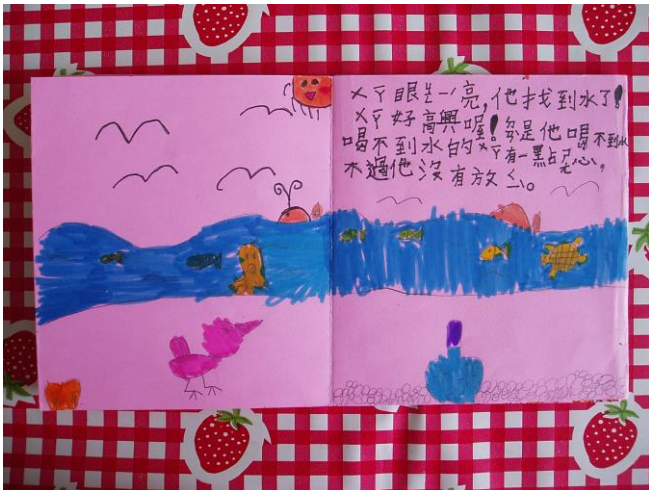 ㄨㄚ眼ㄐㄧㄥ一亮,他找到水了!
ㄨㄚ好高興喔!可是他喝不到水
喝不到水的ㄨㄚ有一點ㄕ心,
不過他沒有放ㄙ。